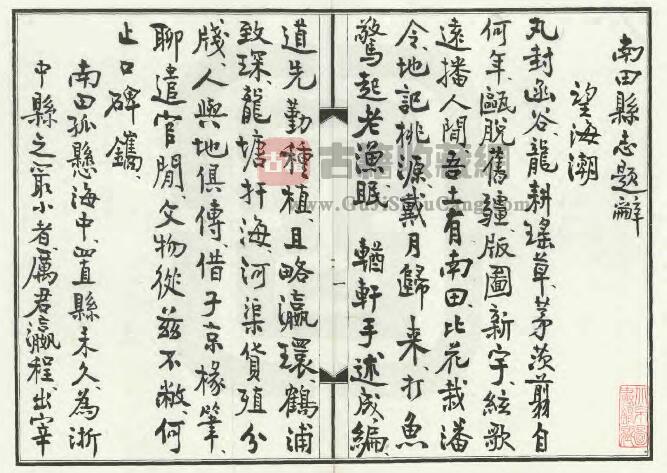 南田縣志題辭
望海潮
丸封函谷、龍耕瑤草、茅茨翦自
何年、甌脫舊疆、版圖新宇、絃歌
遠播人間、吾土有南田、比花栽潘
令、地記桃源、戴月歸來、打魚
驚起老漁眠、輶軒手述成編、
道先勤種植、且略瀛環、鶴浦
致琛、龍塘扞海、河渠貨殖分
牋、人與地俱傳、借子京椽筆、
聊遣官閒、文物從茲不敝、何
止口碑鐫
南田孤懸海中、置縣未久、為浙
中縣之㝡小者、厲君瀛程、出宰
一
古籍收藏網
www.GuJiShouCang.com